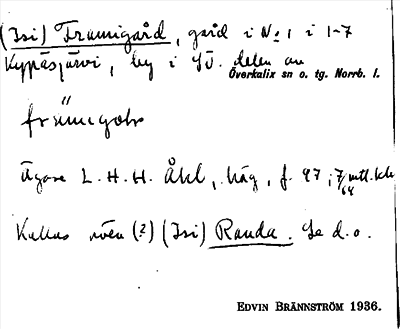 (Isi) Framigård, gård i No 1 i 1-7
Kypäsjärvi, by i SÖ. delen av
Överkalix sn o. tg. Norrb. l.
Ägare L. H. H. Åhl, häg, f. 97, 7/64 mtl. kr
Kallas även (?) (Isi) Randa. Se d. o.
EDVIN BRÄNNSTRÖM 1936.